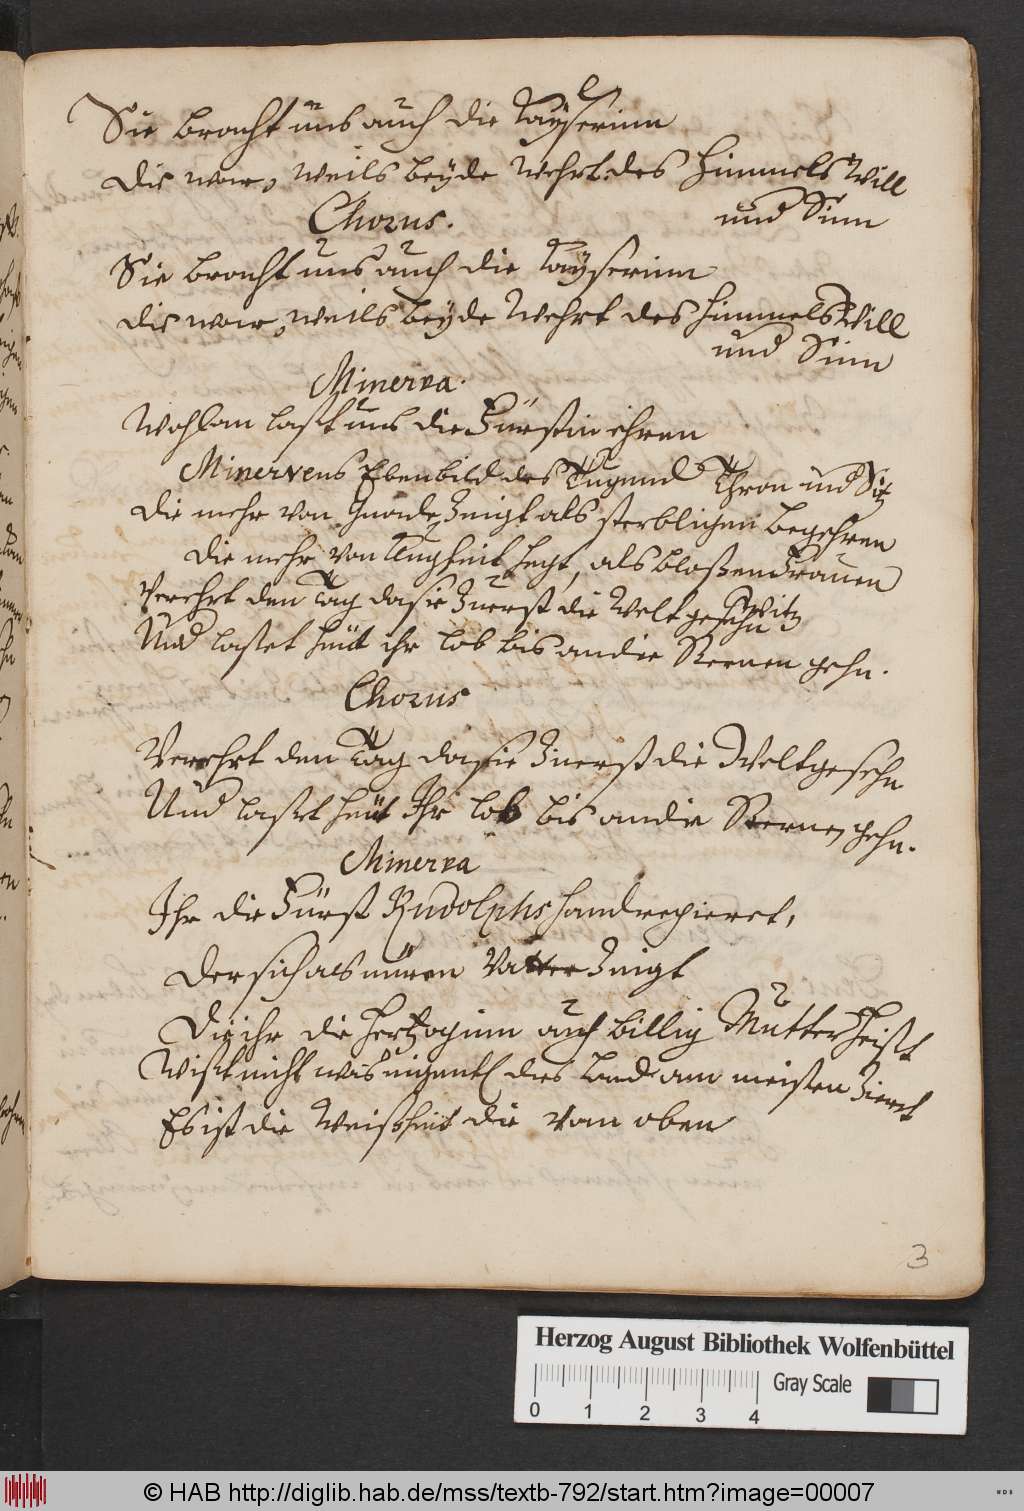 Sie bracht uns auch die Käyserinn
die war, weils beyde wehrt, des Himmels Will
und Sinn
Chorus.
Sie bracht uns auch die Käyserinn
die war, weils beyde wehrt des Himmels Will
und Sinn
Minerva.
Wohlan last uns die Fürstin ehren
Minervens Ebenbild des Tugend Thron und Sitz
die mehr von Gnade zeigt als sterblichen begehren
die mehr von Klugheit hegt, als bloßen Frauen
Witz
Verehrt den Tag da sie zuerst die Welt gesehn
Und lastet heut ihr lob bis an die Sternen gehn.
Chorus
Verehrt den Tag da sie zuerst die Welt gesehn
Und laset heut Ihr lob bis an die Sternen gehn.
Minerva
Ihr die Fürst Rudolphs hand regieret,
der sich als euren Vatter zeigt
Die ihr die Hertzoginn auch billig Mutter heist
Wist nicht was eigentl dies Land am meisten zieret
Es ist die Weißheit die vom oben
3
Herzog August Bibliothek Wolfenbüttel
Gray Scale
0 1 2 3 4
© HAB http://diglib.hab.de/mss/textb-792/start.htm?image=00007